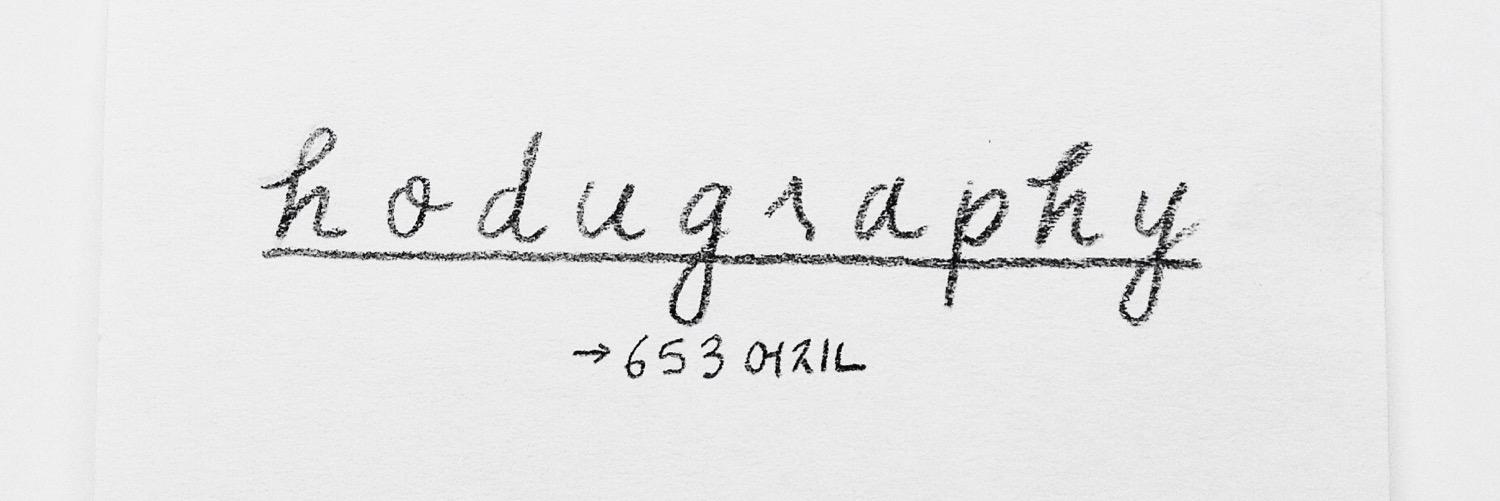 hodugraphy
→ 653